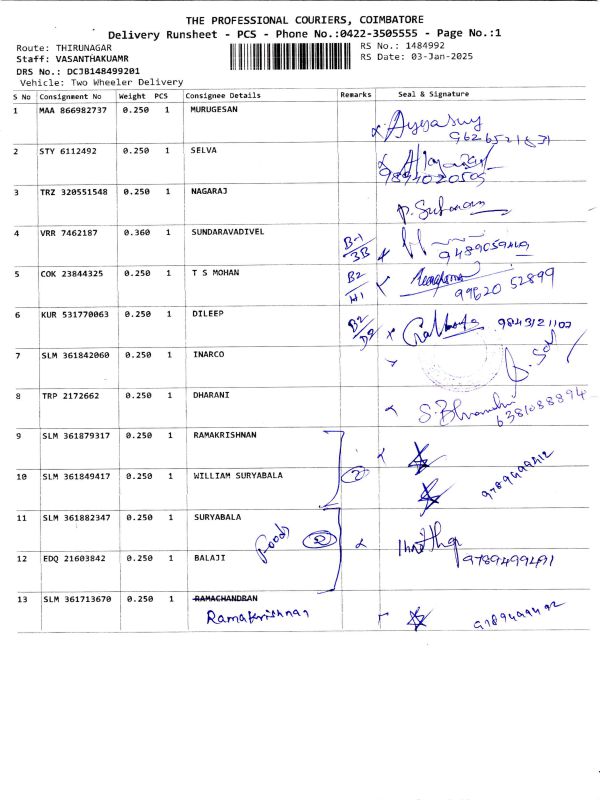 THE PROFESSIONAL COURIERS, COIMBATORE
Delivery Runsheet - PCS - Phone No.:0422-3505555 - Page No.:1
Route: THIRUNAGAR RS No.: 1484992
Staff: VASANTHAKUAMR RS Date: 03-Jan-2025
DRS No.: DCJB148499201
Vehicle: Two Wheeler Delivery
S No Consignment No Weight PCS Consignee Details Remarks Seal & Signature
1 MAA 866982737 0.250 1 MURUGESAN
2 STY 6112492 0.250 1 SELVA
9894020505
3 TRZ 320551548 0.250 1 NAGARAJ
4 VRR 7462187 0.360 1 SUNDARAVADIVEL B-1/3B
5 COK 23844325 0.250 1 T S MOHAN B2/H1
99620 52899
6 KUR 531770063 0.250 1 DILEEP B2/D2 9843121107
7 SLM 361842060 0.250 1 INARCO
8 TRP 2172662 0.250 1 DHARANI
6381088894
9 SLM 361879317 0.250 1 RAMAKRISHNAN
10 SLM 361849417 0.250 1 WILLIAM SURYABALA 2
9789499412
11 SLM 361882347 0.250 1 SURYABALA
Food 2
12 EDQ 21603842 0.250 1 BALAJI
9789499491
13 SLM 361713670 0.250 1 RAMACHANDRAN
Ramakrishnan